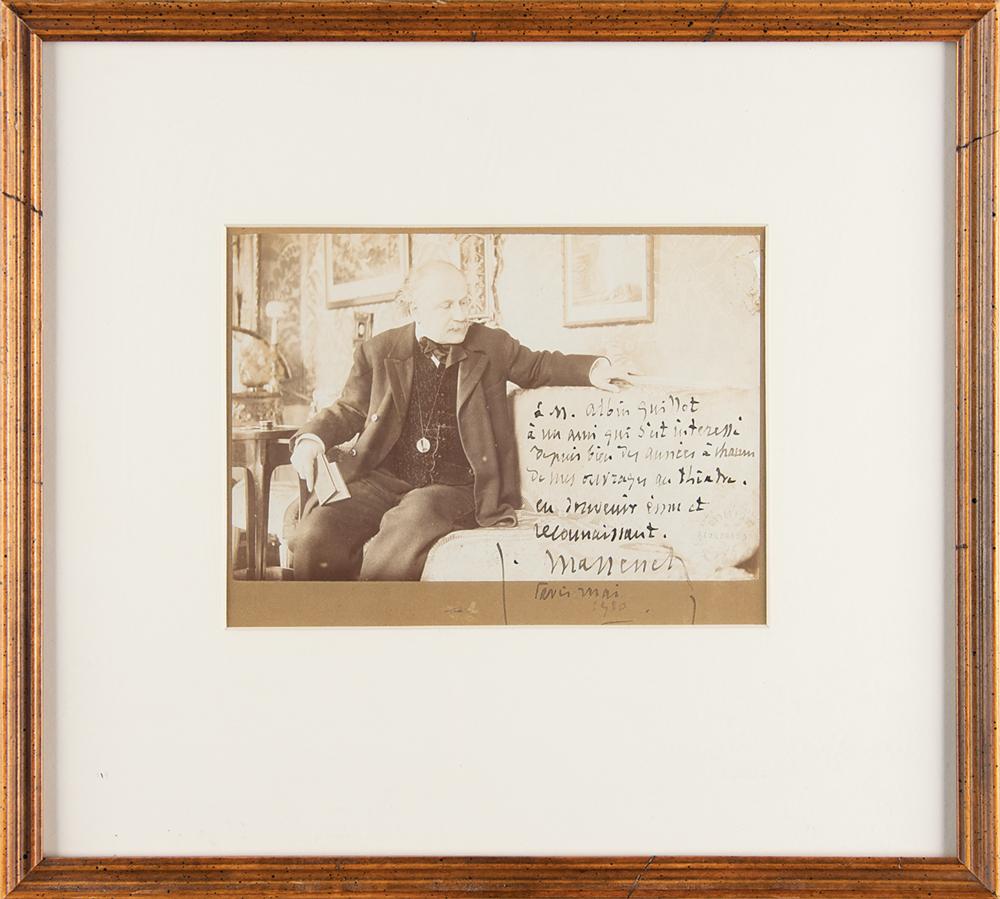 à M. Albin Guillot
à un ami qui s'est intéressé
depuis bien des années à chacun
de mes ouvrages au théâtre.
en souvenir ému et
reconnaissant.
J. Massenet
Paris mai